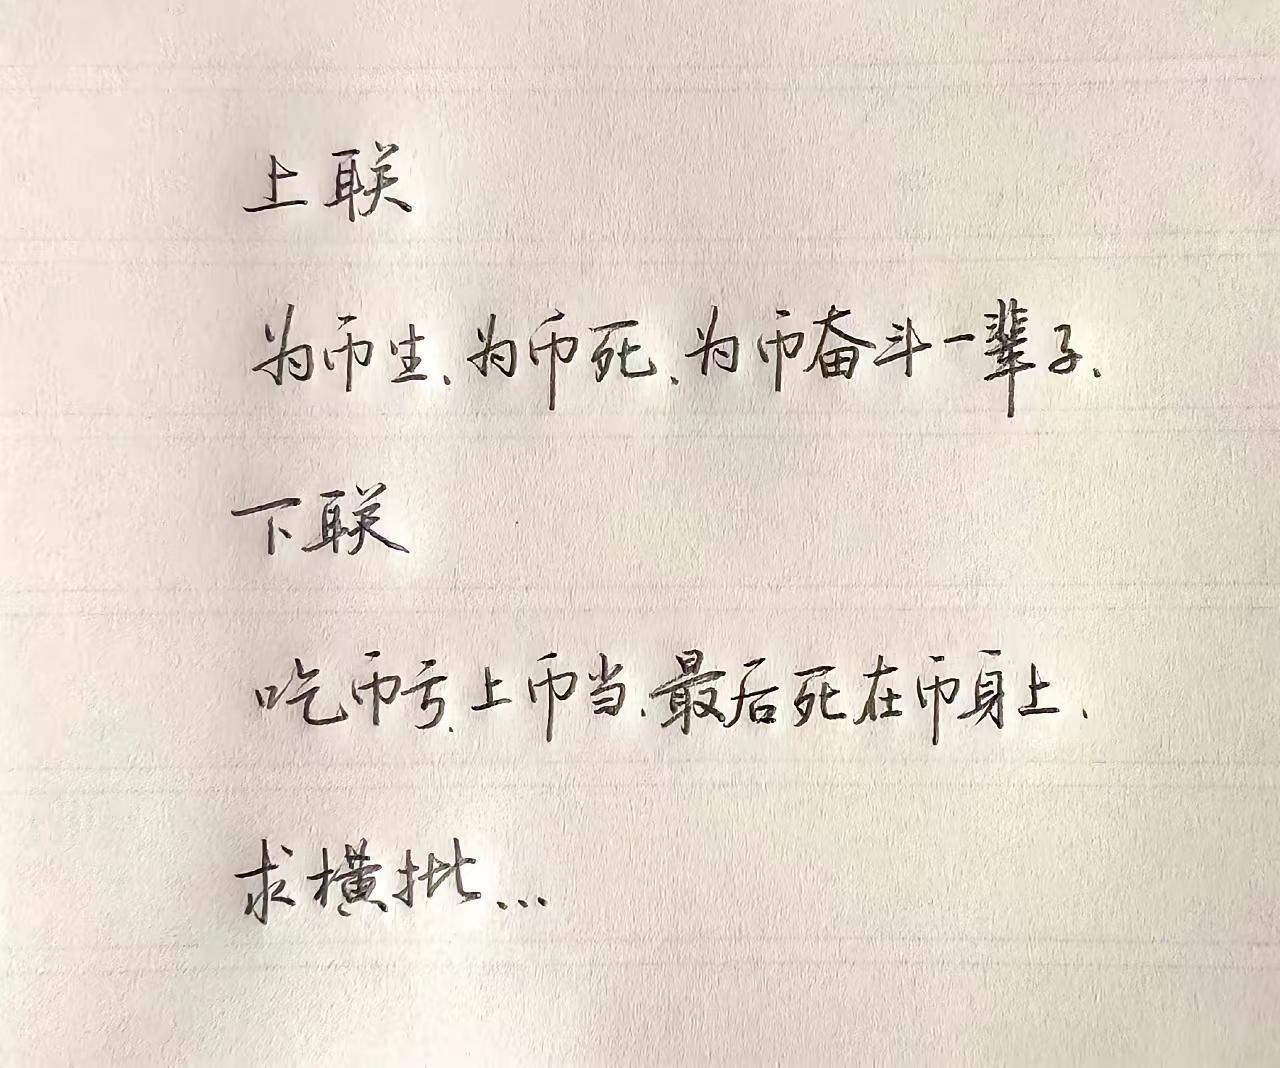 上联
为币生、为币死、为币奋斗一辈子、
下联
吃币亏、上币当、最后死在币身上、
求横批...